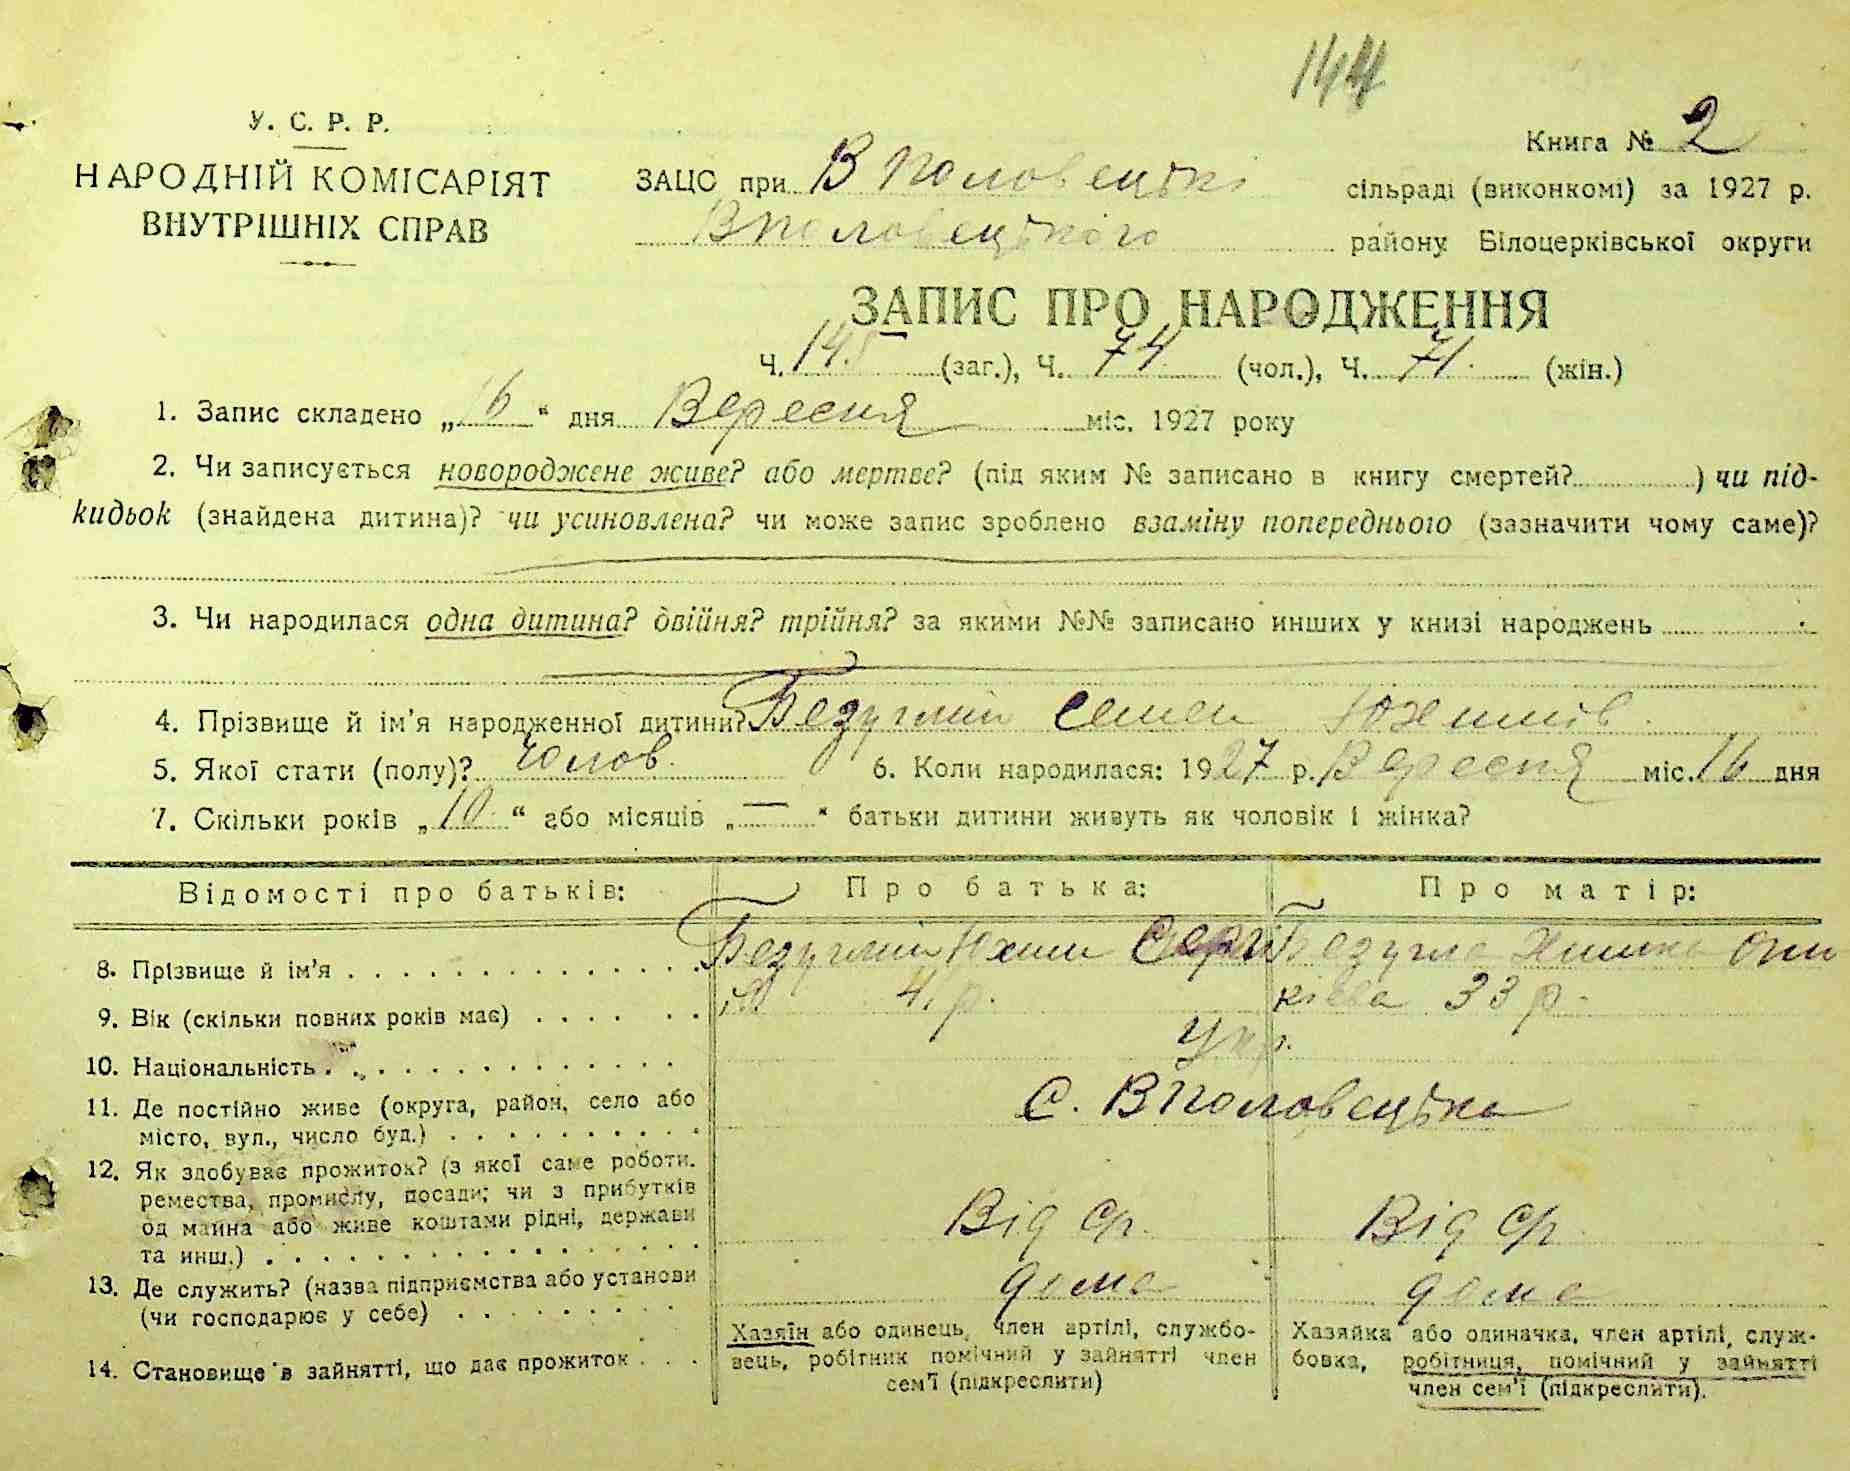 144
У. С. Р. Р.
НАРОДНІЙ КОМІСАРІЯТ
ВНУТРІШНІХ СПРАВ
Книга № 2
ЗАЦС при В Половецькі сільраді (виконкомі) за 1927 р.
В Половецького району Білоцерківської округи
ЗАПИС ПРО НАРОДЖЕННЯ
Ч. 145 (заг.), Ч. 74 (чол.), Ч. 71. (жін.)
1. Запис складено „16“ дня Вересня міс. 1927 року
2. Чи записується новороджене живе? або мертве? (під яким № записано в книгу смертей?) чи під-
кидьок (знайдена дитина)? чи усиновлена? чи може запис зроблено взаміну попереднього (зазначити чому саме)?
3. Чи народилася одна дитина? двійня? трійня? за якими №№ записано инших у книзі народжень
4. Прізвище й ім'я народженної дитини? Безуглий Семен Юхимів
5. Якої стати (полу)? Чолов. 6. Коли народилася: 1927 р. Вересня міс. 16 дня
7. Скільки років „10“ або місяців „—“ батьки дитини живуть як чоловік і жінка?
Відомості про батьків: Про батька: Про матір:
8. Прізвище й ім'я Безуглий Юхим Безугла
9. Вік (скільки повних років має) 33 р.
10. Національність Укр.
11. Де постійно живе (округа, район, село або
місто, вул., число буд.) С. В Половецька
12. Як здобуває прожиток? (з якої саме роботи.
ремества, промислу, посади; чи з прибутків
од майна або живе коштами рідні, держави
та инш.) Від ср. Від ср
13. Де служить? (назва підприємства або установи
(чи господарює у себе) дома дома
14. Становище в зайнятті, що дає прожиток
Хазяїн або одинець, член артілі, службо-
вець, робітник помічний у зайнятті член
сем'ї (підкреслити)
Хазяйка або одиначка, член артілі, служ-
бовка, робітниця, помічний у зайнятті
член сем'ї (підкреслити).